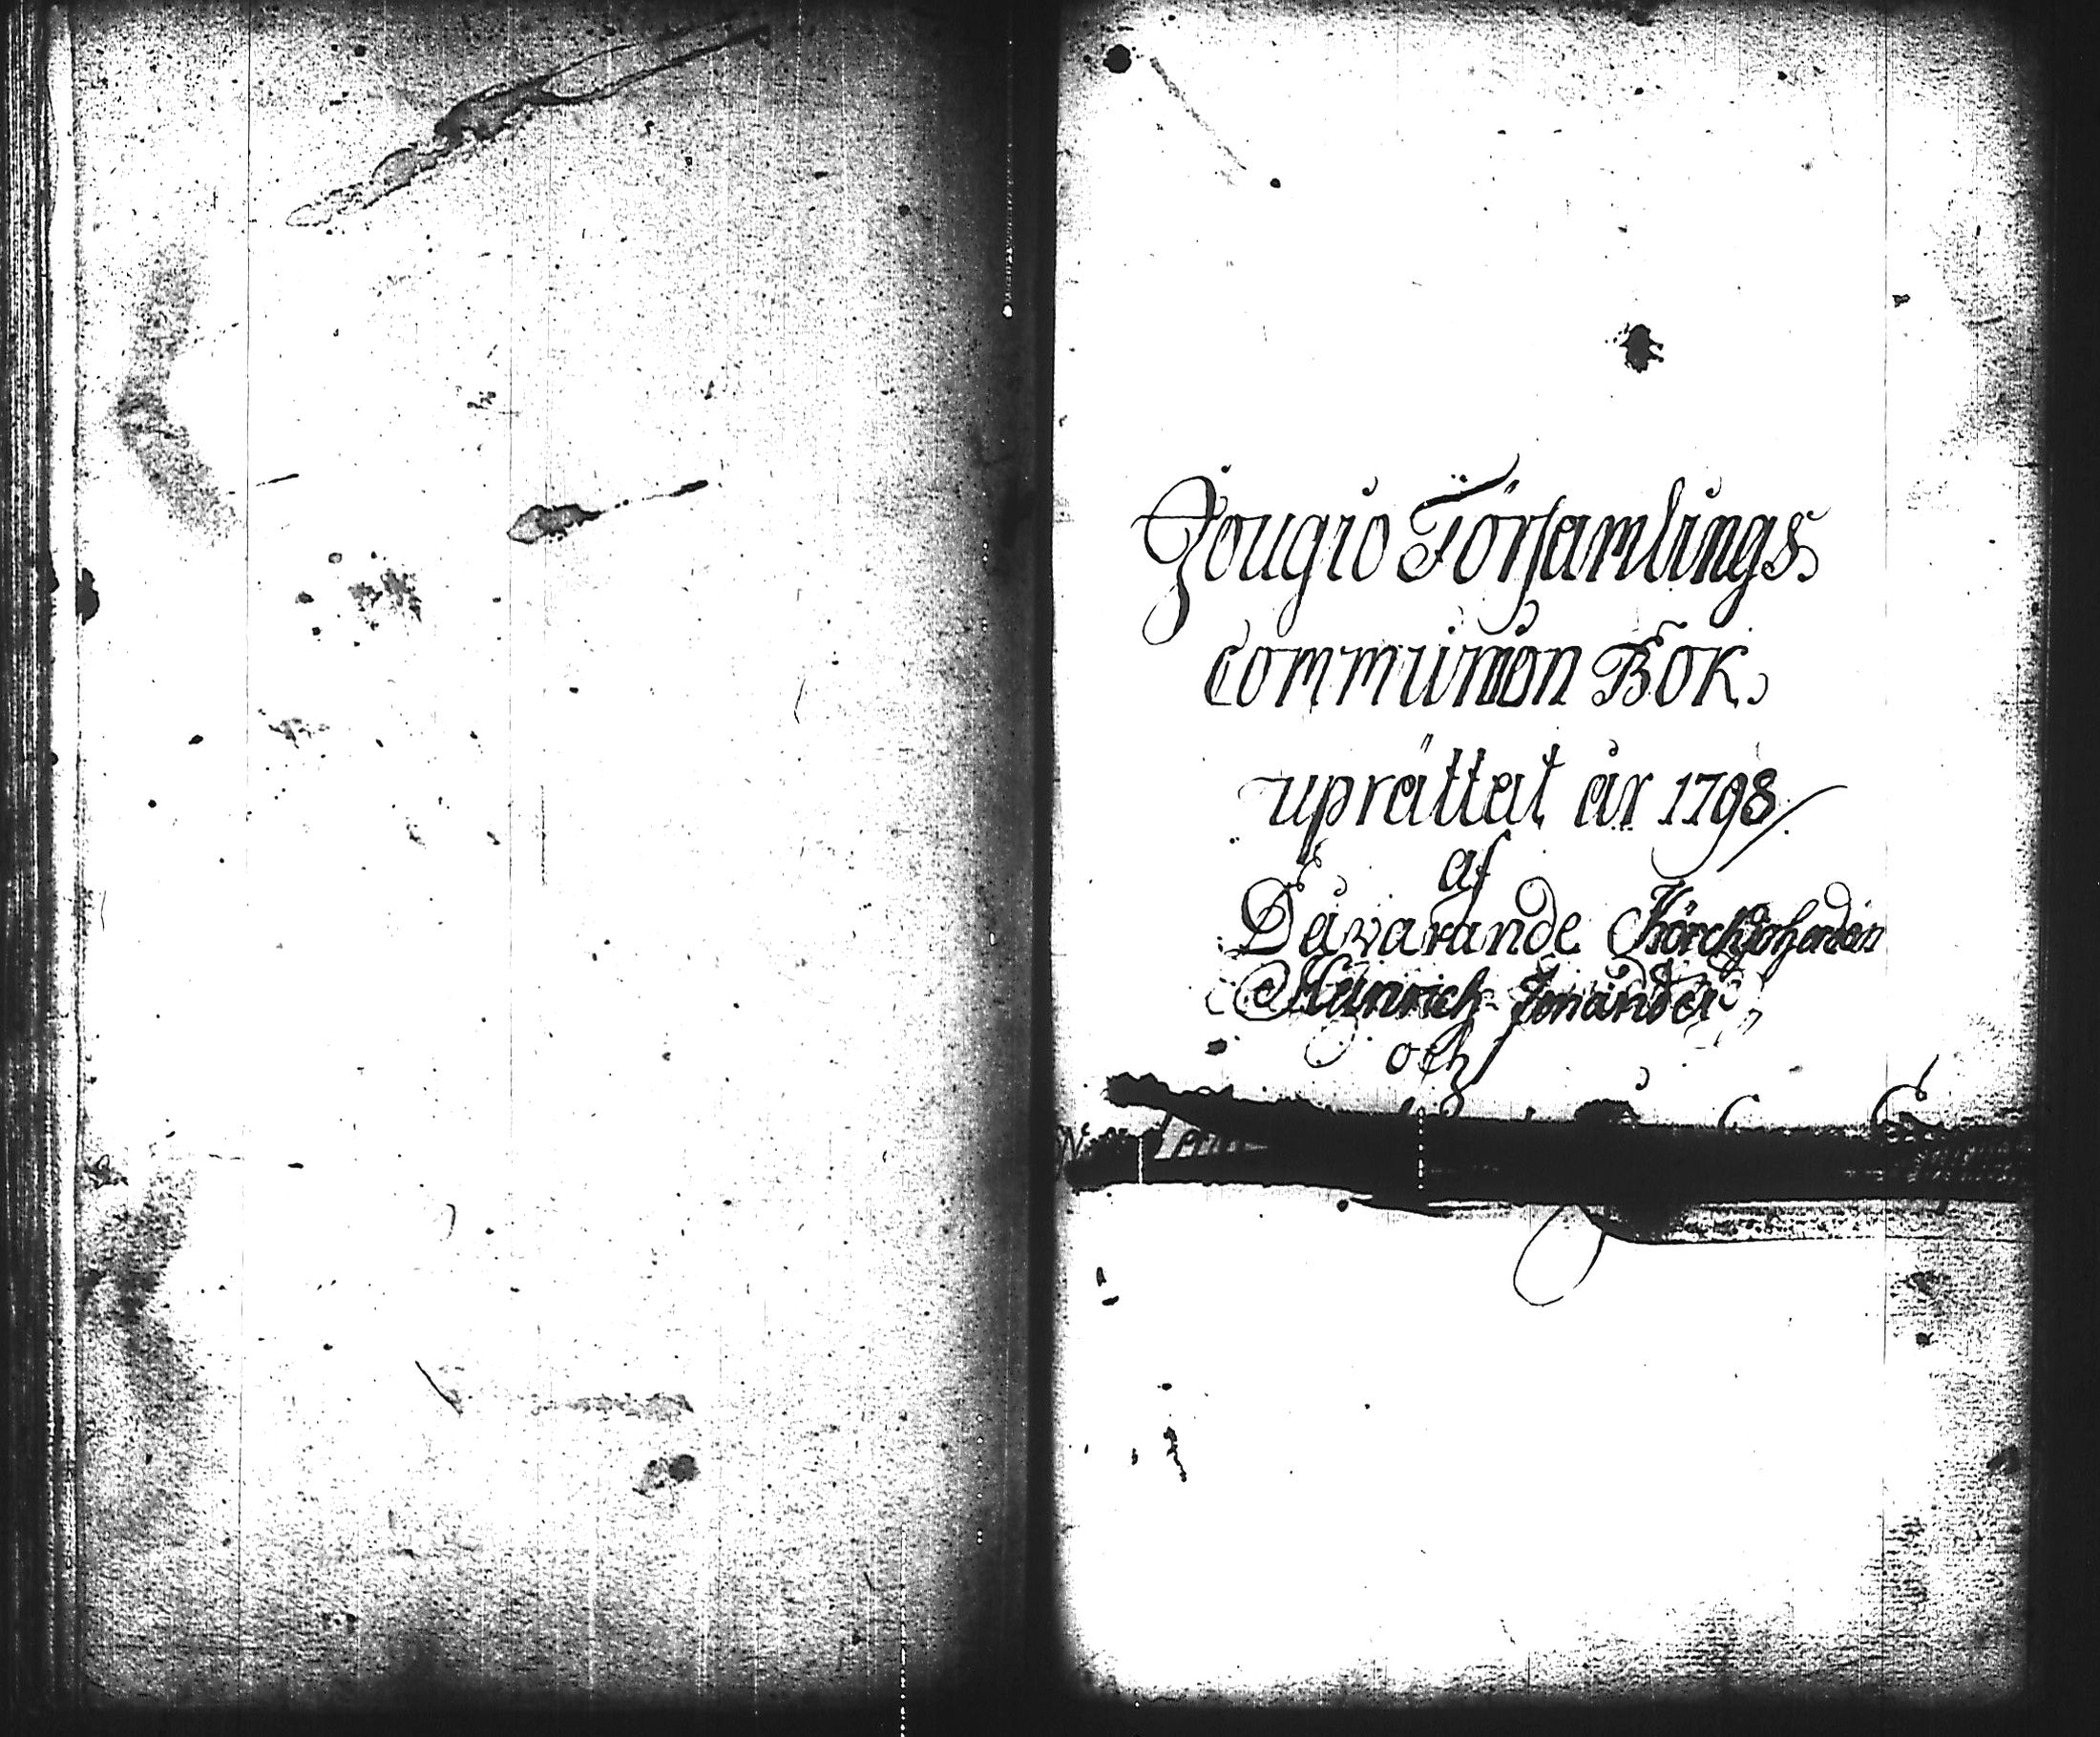 Jougio Församlings
Communion Bok
uprättat år 1798
af
Dåvarande Kÿrckioherden
Heinrich Zenander
och